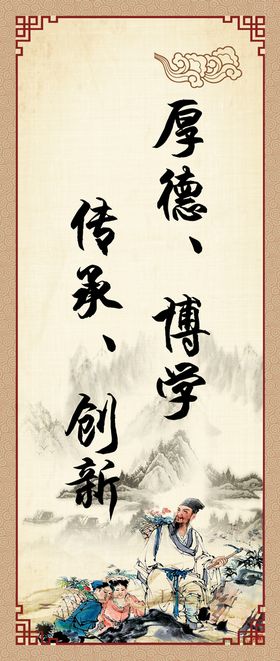 厚德、博学
传承、创新